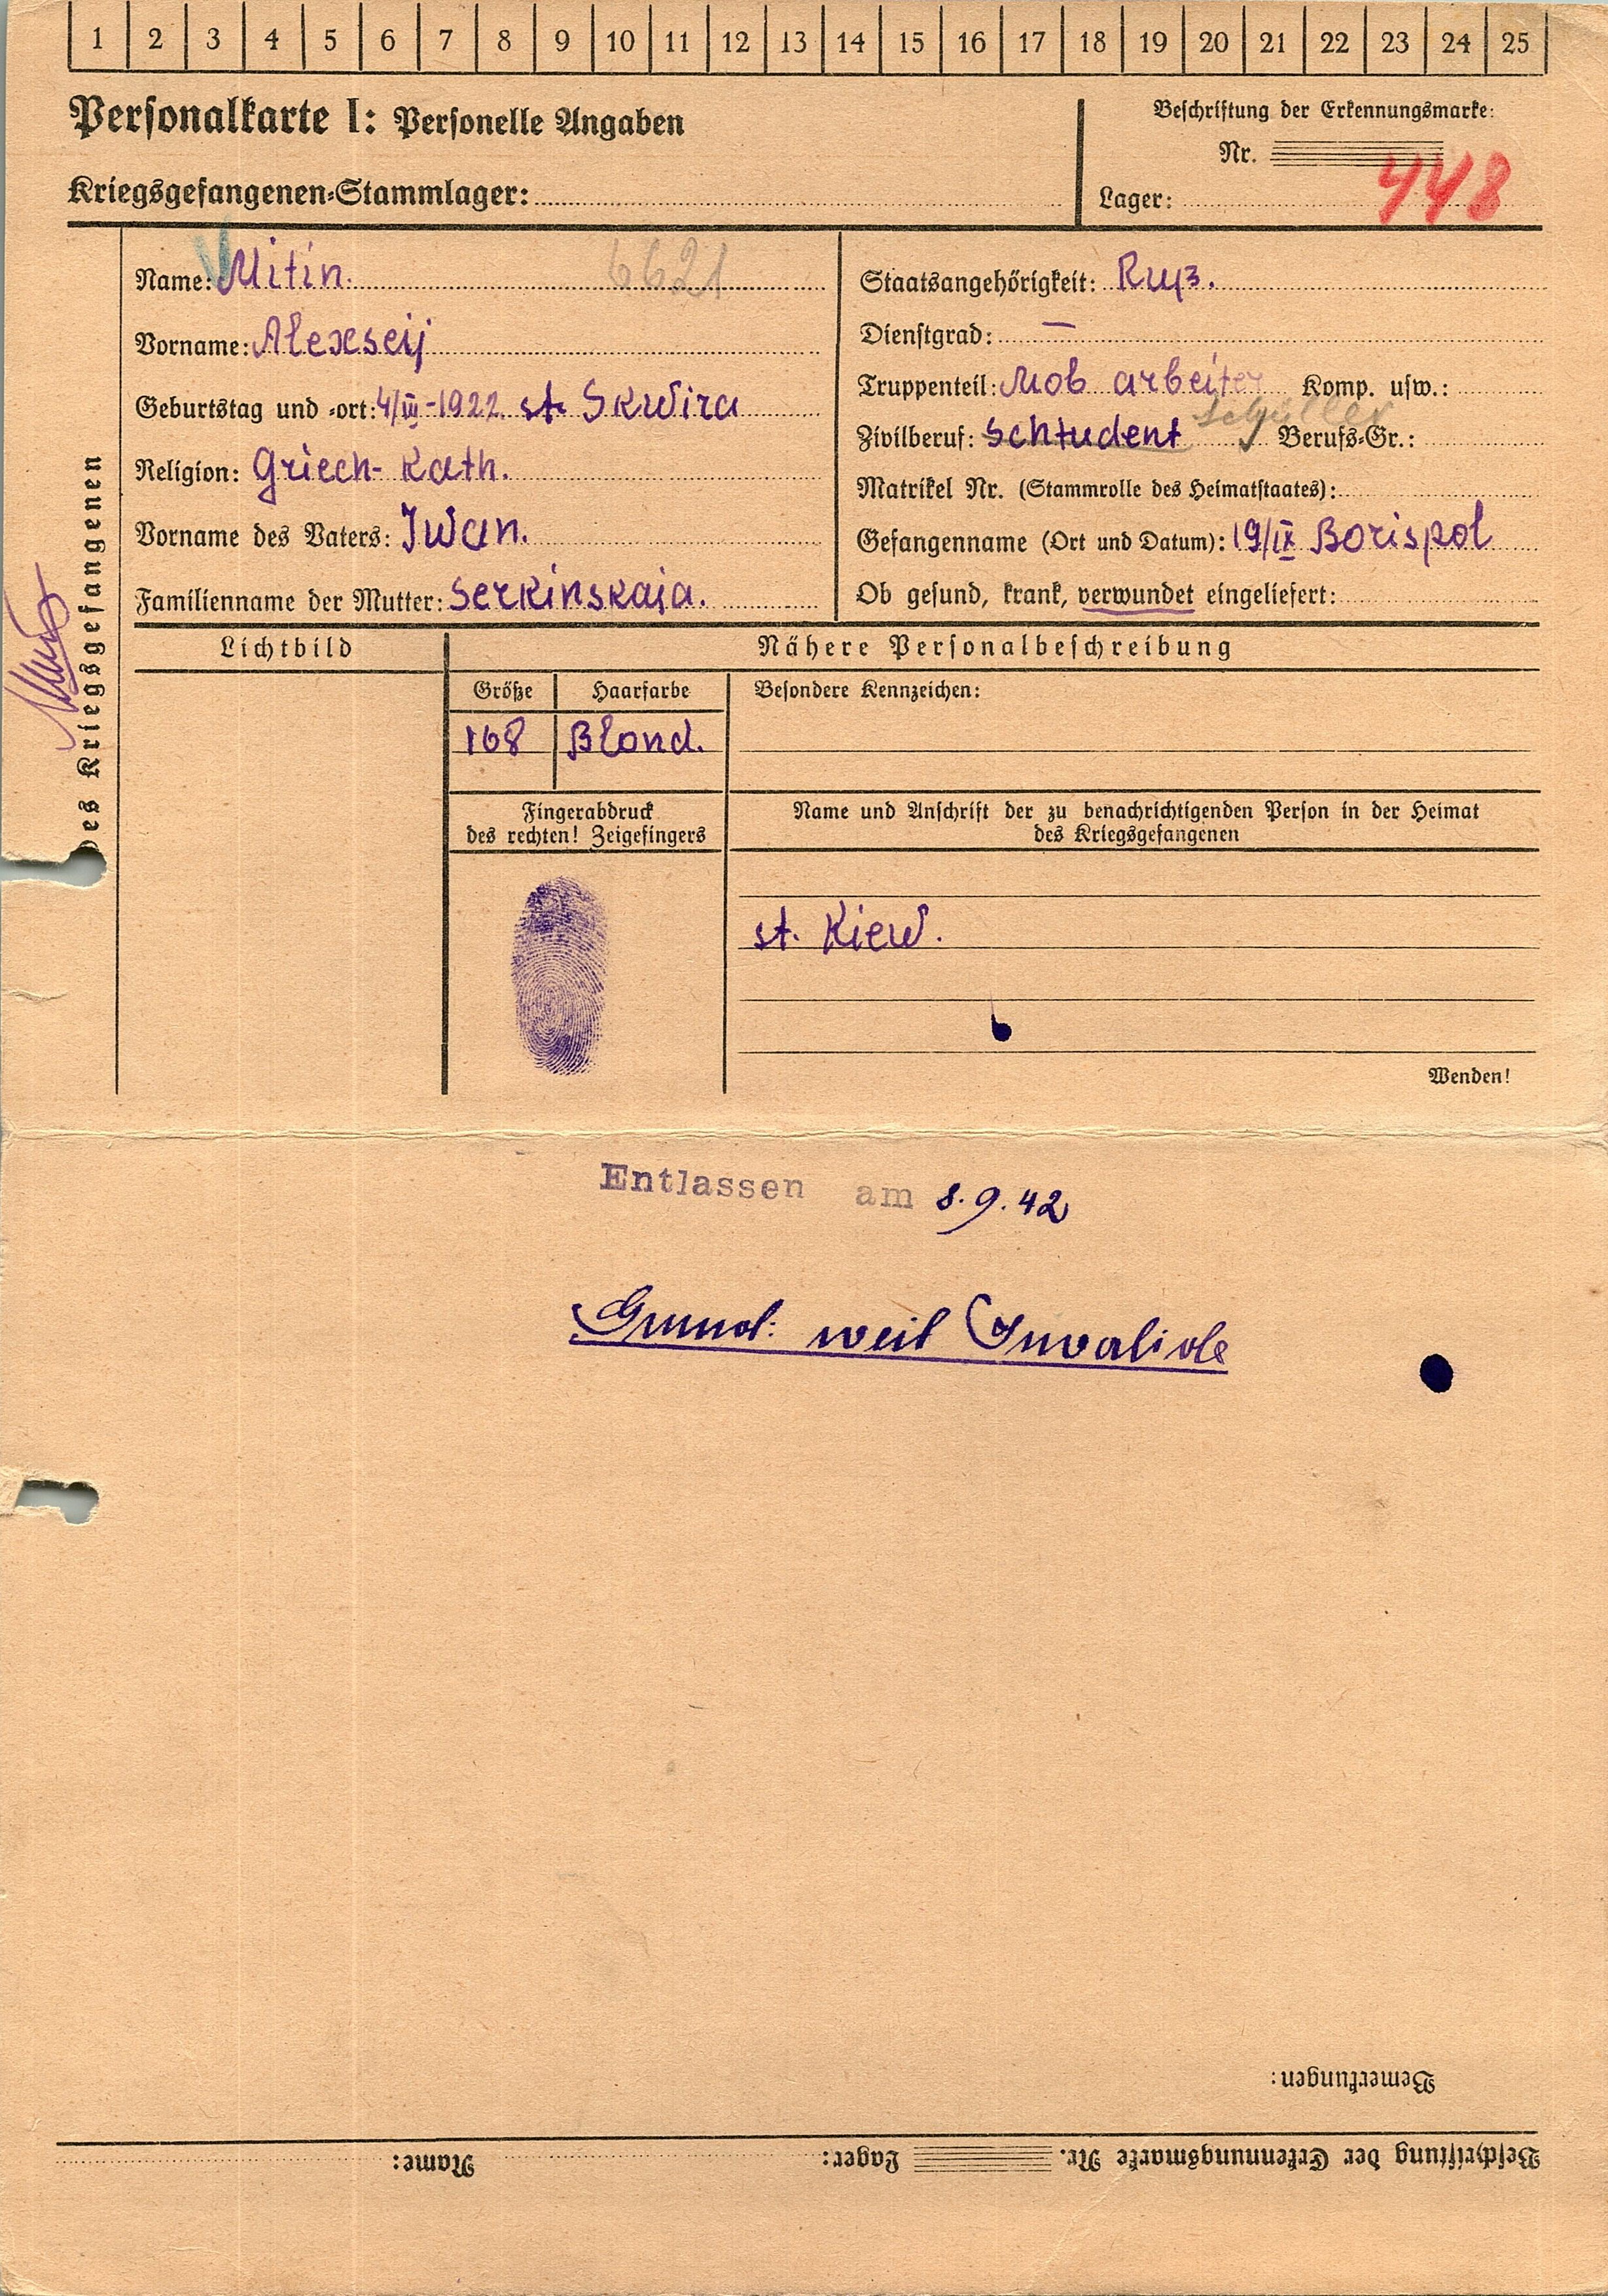 1 2 3 4 5 6 7 8 9 10 11 12 13 14 15 16 17 18 19 20 21 22 23 24 25
Personalkarte I: Personelle Angaben
Kriegsgefangenen-Stammlager:
Beschriftung der Erkennungsmarke:
Nr.
Lager:
448
des Kriegsgefangenen
Name: Mitin. 6621
Vorname: Alexseij
Geburtstag und -ort: 4/III-1922 st. Skwira
Religion: Griech- Kath.
Vorname des Vaters: Iwan.
Familienname der Mutter: Serkinskaja.
Staatsangehörigkeit: Ruß.
Dienstgrad: —
Truppenteil: Mob arbeiter Komp. usw.:
Schüller
Zivilberuf: Schtudent Berufs-Gr.:
Matrikel Nr. (Stammrolle des Heimatstaates):
Gefangenname (Ort und Datum): 19/IX Borispol
Ob gesund, krank, verwundet eingeliefert:
Lichtbild
Nähere Personalbeschreibung
Größe Haarfarbe Besondere Kennzeichen:
168 Blond.
Fingerabdruck
des rechten! Zeigefingers
Name und Anschrift der zu benachrichtigenden Person in der Heimat
des Kriegsgefangenen
st. Kiew.
Wenden!
Entlassen am 8.9.42
Grund: weil Invalide
Bemerkungen:
Beschriftung der Erkennungsmarke Nr. Lager: Name: